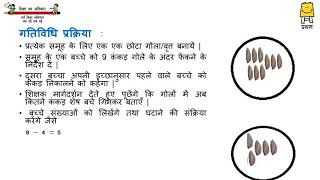 गतिविधि प्रक्रिया :
• प्रत्येक समूह के लिए एक एक छोटा गोला/वृत्त बनायें |
• समूह के एक बच्चे को 9 कंकड़ गोले के अंदर फेंकने के
निर्देश दें |
• दुसरा बच्चा अपनी इच्छानुसार पहले वाले बच्चे को
कंकड़ निकालने को कहेगा |
• शिक्षक मार्गदर्शन देते हुए पूछेंगे कि गोलों मे अब
कितने कंकड़ शेष बचे गिनकर बताएँ |
• बच्चे संख्याओं को लिखेंगे तथा घटाने की संक्रिया
करेंगे जैसे
9 – 4 = 5
प्रथम